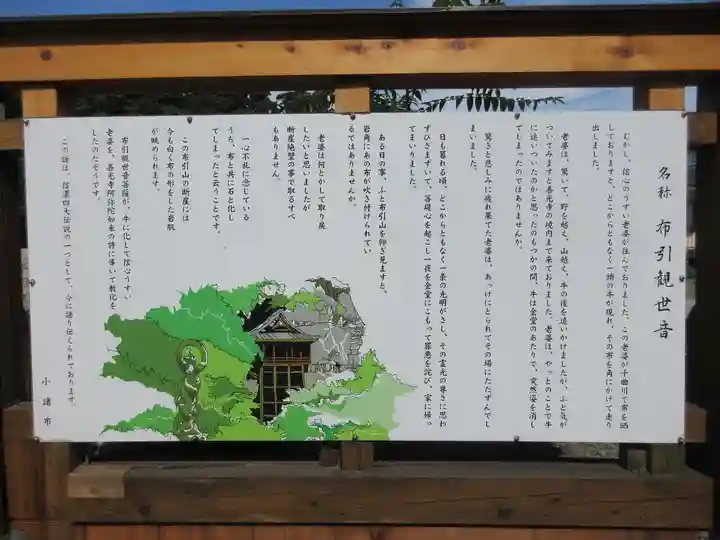 名称 布引観世音
むかし、信心のうすい老婆が住んでおりました。この老婆が千曲川で布を晒
しておりますと、どこからともなく一頭の牛が現れ、その布を角にかけて走り
出しました。
老婆は、驚いて、野を越え、山越え、牛の後を追いかけましたが、ふと気が
ついてみますと善光寺の境内まで来ておりました。老婆は、やっとのことで牛
に追いついたのかと思ったのもつかの間、牛は金堂のあたりで、突然姿を消し
てしまったのではありませんか。
驚きと悲しみに疲れ果てた老婆は、あっけにとられてその場にたたずんでし
まいました。
日も暮れる頃、どこからともなく一条の光明がさし、その霊光の尊さに思わ
ずひざまずいて、菩提心を起こし一夜を金堂にこもって罪悪を詫び、家に帰っ
てまいりました。
ある日の事、ふと布引山を仰ぎ見ますと、
岩角にあの布が吹き付けられてい
るではありませんか。
老婆は何とかして取り戻
したいと思いましたが
断崖絶壁の事で取るすべ
もありません。
一心不乱に念じている
うち、布と共に石と化し
てしまったと云うことです。
この布引山の断崖には
今も白く布の形をした岩肌
が眺められます。
布引観世音菩薩が、牛に化して信心うすい
老婆を、善光寺阿弥陀如来の詩に導いて教化を
したのだそうです。
この話は、信濃四大伝説の一つとして、今に語り伝えられております。
小諸市